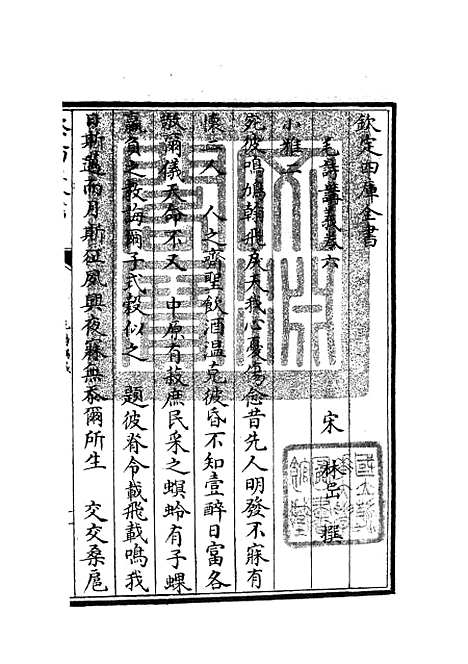 欽定四庫全書
毛詩講義卷六
宋 林岊 撰
小雅二
宛彼鳴鳩翰飛戾天我心憂傷念昔先人明發不寐有
懷二人 人之齊聖飲酒溫克彼昏不知壹醉日富各
敬爾儀天命不又 中原有菽庶民采之螟蛉有子蜾
蠃負之教誨爾子式穀似之 題彼脊令載飛載鳴我
日斯邁而月斯征夙興夜寐無忝爾所生 交交桑扈